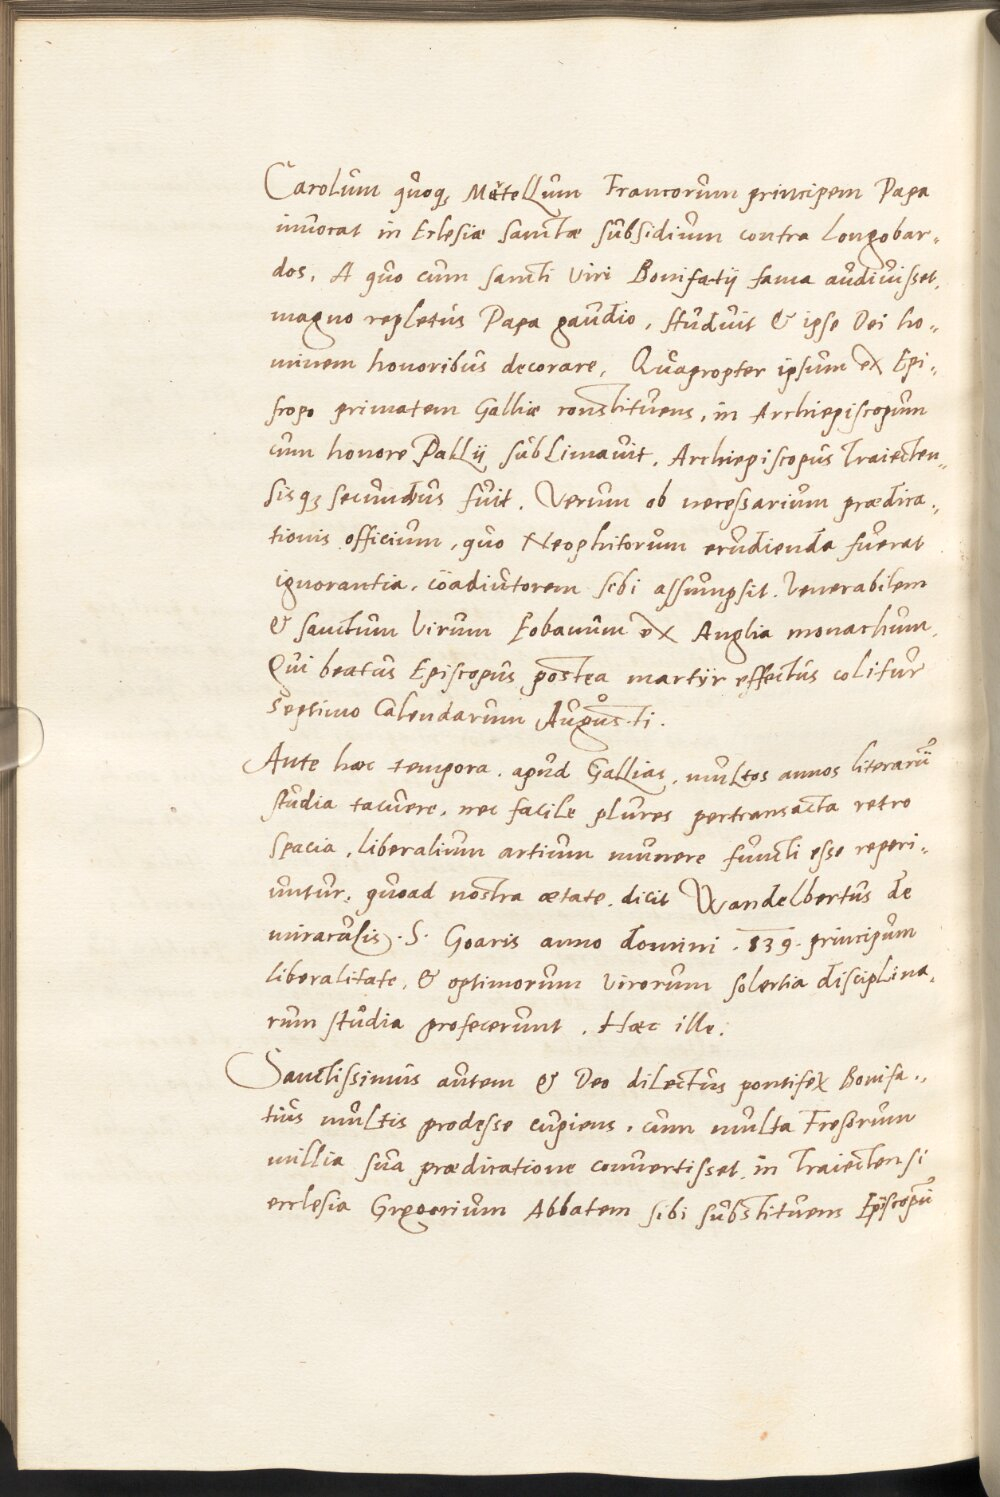 Carolum quoq; Mètellum Francorum principem Papa
inuocat in Eclesiæ sanctæ subsidium contra Longobar„
dos. A quo cum sancti viri Bonifatij fama audiuisset,
magno repletus Papa gaudio, studuit & ipse Dei ho„
minem honoribus decorare. Quapropter ipsum ex Epi„
scopo primatem Galliæ constituens, in Archiepiscopum
cum honore Pallij sublimauit. Archiepiscopus Traiecten„
sisq; secundus fuit. Verum ob necessarium prædica„
tionis officium, quo Neophitorum erudienda fuerat
ignorantia, cöadiutorem sibi assumpsit. Venerabilem
& sanctum virum Eobanum ex Anglia monachum.
Qui beatus Episcopus postea martÿr effectus colitur
Septimo Calendarum Augusti.
Ante hæc tempora, apud Gallias, multos annos literarū
studia tacuere, nec facile plures pertransacta retro
spacia, liberalium artium munere functi esse reperi„
untur, quoad nostra ætate, dicit Wandelbertus de
miraculis .S. Goaris anno domini .839. principum
liberalitate, & optimorum virorum solertia disciplina„
rum studia profecerunt. Hæc ille.
Sanctissimus autem & Deo dilectus pontifex Bonifa„
tius multis prodesse cupiens, cum multa Fresorum
millia sua prædicatione conuertisset, in Traiectensi
ecclesia Gregorium Abbatem sibi substituens Episcopū